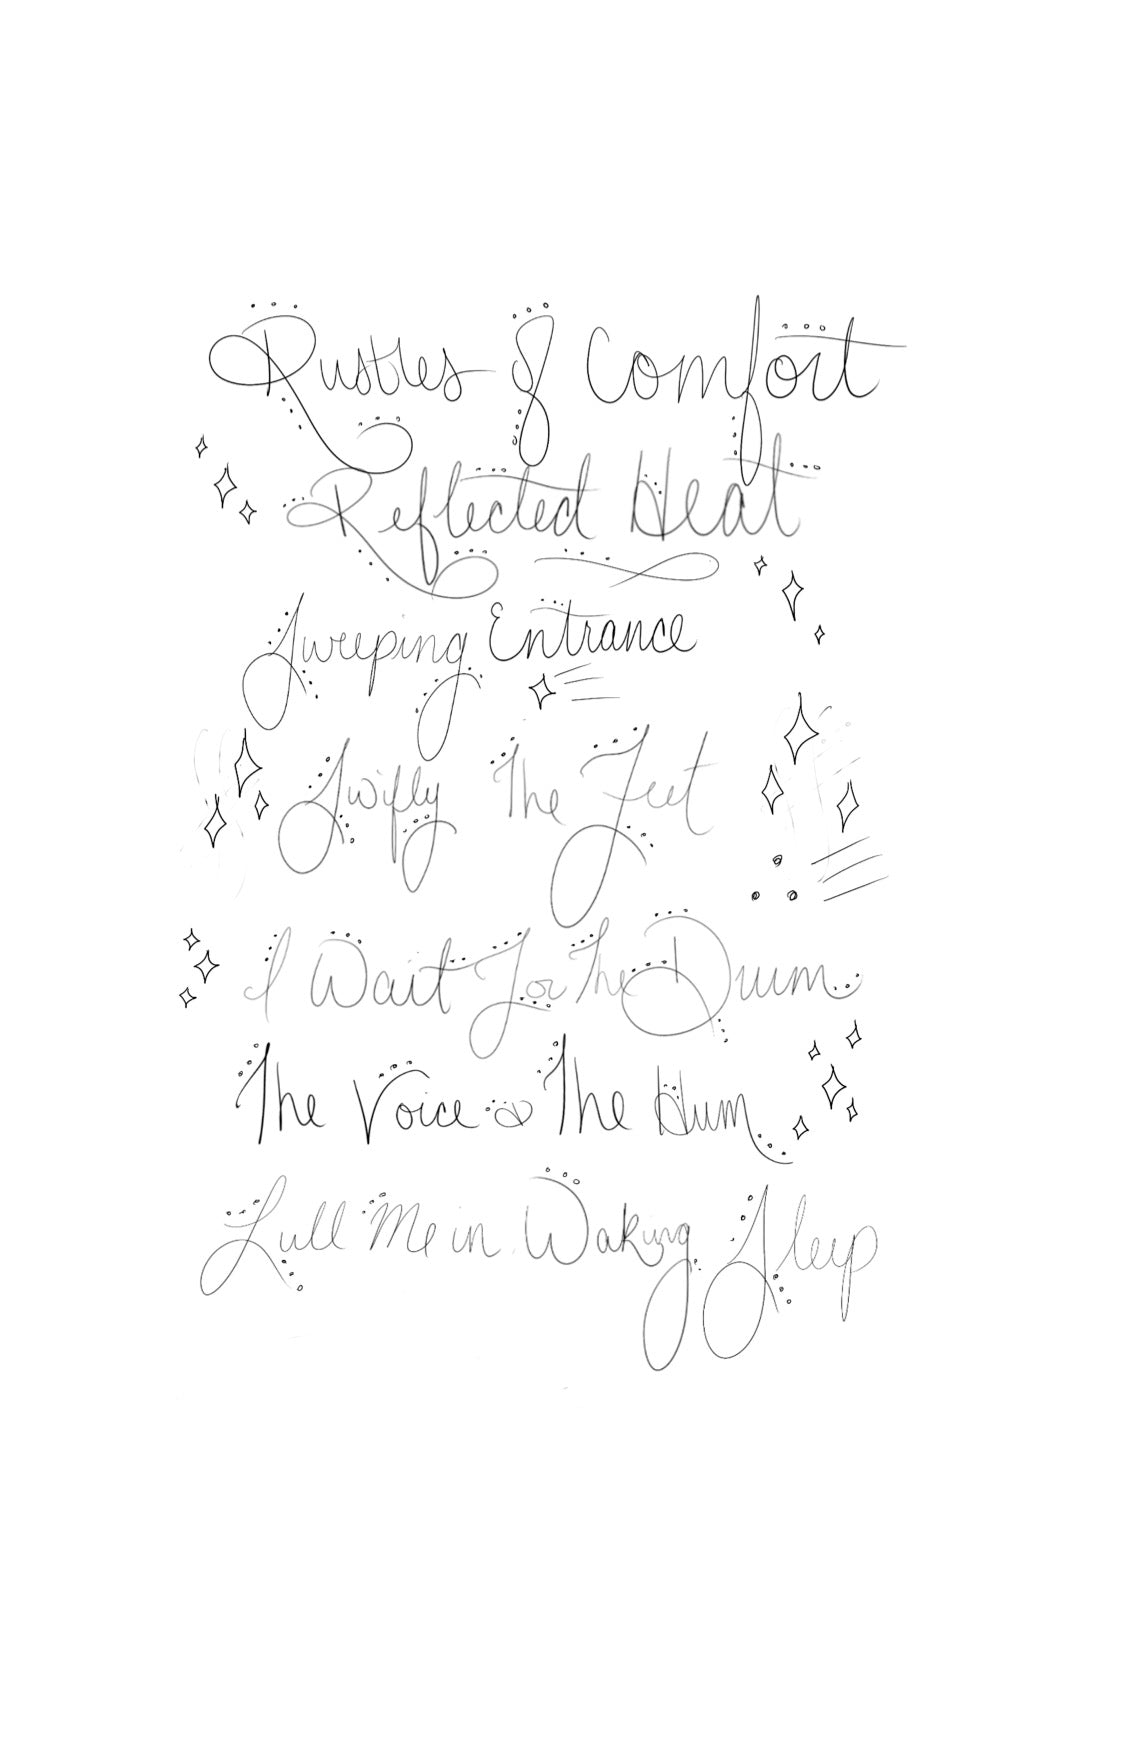 Rustles of Comfort
Reflected Heat
Sweeping Entrance
Swifly The Feet
I Wait For The Drum
The Voice & The Hum
Lull Me in Waking Sleep